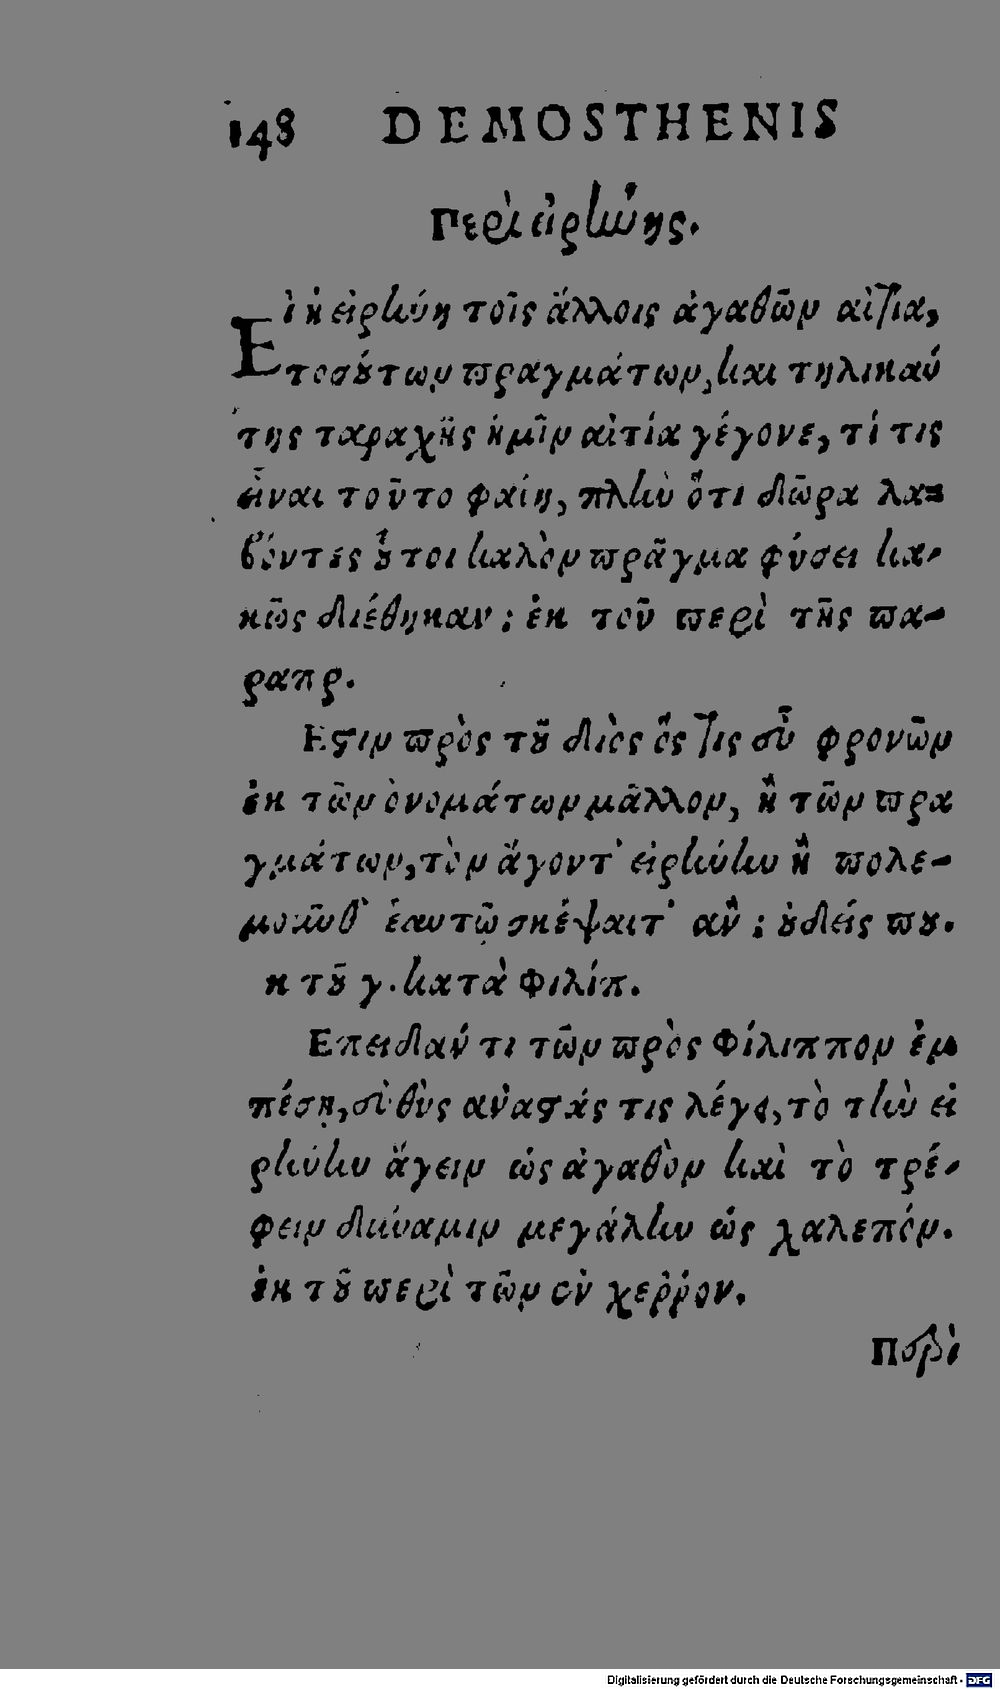 148 DEMOSTHENIS
Περὶ εἰρήνης.
Εἰ ἡ εἰρήνη τοῖς ἄλλοις ἀγαθῶν αἰτία,
τοσούτων πραγμάτων, καὶ τηλικαύ
της ταραχῆς ἡμῖν αἰτία γέγονε, τί τις
εἶναι τοῦτο φαίη, πλὴν ὅτι δῶρα λα-
βόντες οὗτοι καλὸν πρᾶγμα φύσει κα-
κῶς διέθηκαν; ἐκ τοῦ περὶ τῆς πα-
ραπρ.
Εστιν πρὸς τοῦ διὸς ὅς τις εὖ φρονῶν
ἐκ τῶν ὀνομάτων μᾶλλον, ἢ τῶν πρα
γμάτων, τὸν ἄγοντ' εἰρήνην ἢ πολε-
μοῦνθ' ἑαυτῷ σκέψαιτ' ἄν; οὐδείς που.
κ τοῦ γ. κατὰ Φιλίπ.
Επειδάν τι τῶν πρὸς Φίλιππον ἐμ
πέσῃ, εὐθὺς ἀναστάς τις λέγει, τὸ τὴν εἰ
ρήνην ἄγειν ὡς ἀγαθὸν καὶ τὸ τρέ-
φειν δύναμιν μεγάλην ὡς χαλεπόν.
ἐκ τοῦ περὶ τῶν ἐν χερῤῥον.
Περὶ
Digitalisierung gefördert durch die Deutsche Forschungsgemeinschaft - DFG